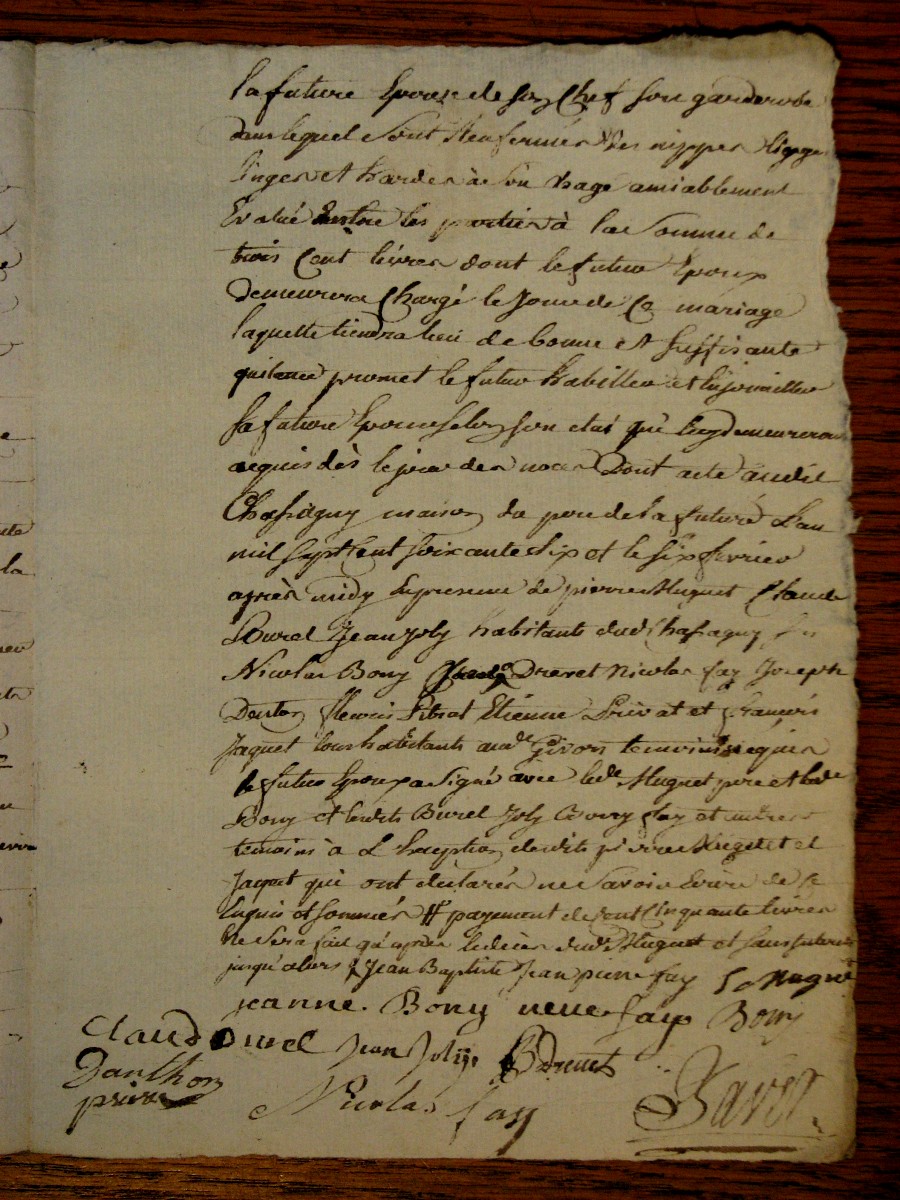 la future Epouse de son Chef son garderobe
dans lequel sont Renfermés ses nippes
linges et hardes à son Usage amiablement
Evalué Entre les parties à la somme de
trois Cent livres dont le futur Epoux
demeurera Chargé le jour de Ce mariage
laquelle tiendra lieu de bonne et suffisante
quitance promet le futur habiller et Enjoueiller
sa future Epouse selon son etat qui luy demeureront
acquis dès le jour des noces Dont acte audit
Chassagny maison du pere de la future L'an
mil sept Cent soixante six et le six fevrier
après midy En presence de pierre Huguet Claude
Burel Jean Joly habitants dud Chassagny
Nicolas Bony Drevet Nicolas fay Joseph
Danton Pitrat Etienne Privat et françois
Jaquet tous habitants aud Givors temoins requis
le futur Epoux a signé avec led Huguet pere et lade
Bony et lesdits Burel Joly Bony fay et autres
temoins à L'Exception desdits pierre Huguet et
Jaquet qui ont declarés ne savoir Ecrire de Ce
Enquis et sommés # payement de Cent Cinquante livres
Ne sera fait qu'après le decès dud Huguet et sans interets
jusqu'alors # Jean Baptiste Jean pierre fay
jeanne Bony veuve fay Bony
Claud Burel Jean Jolij B Drevet
Danthon
privat Nicolas fay